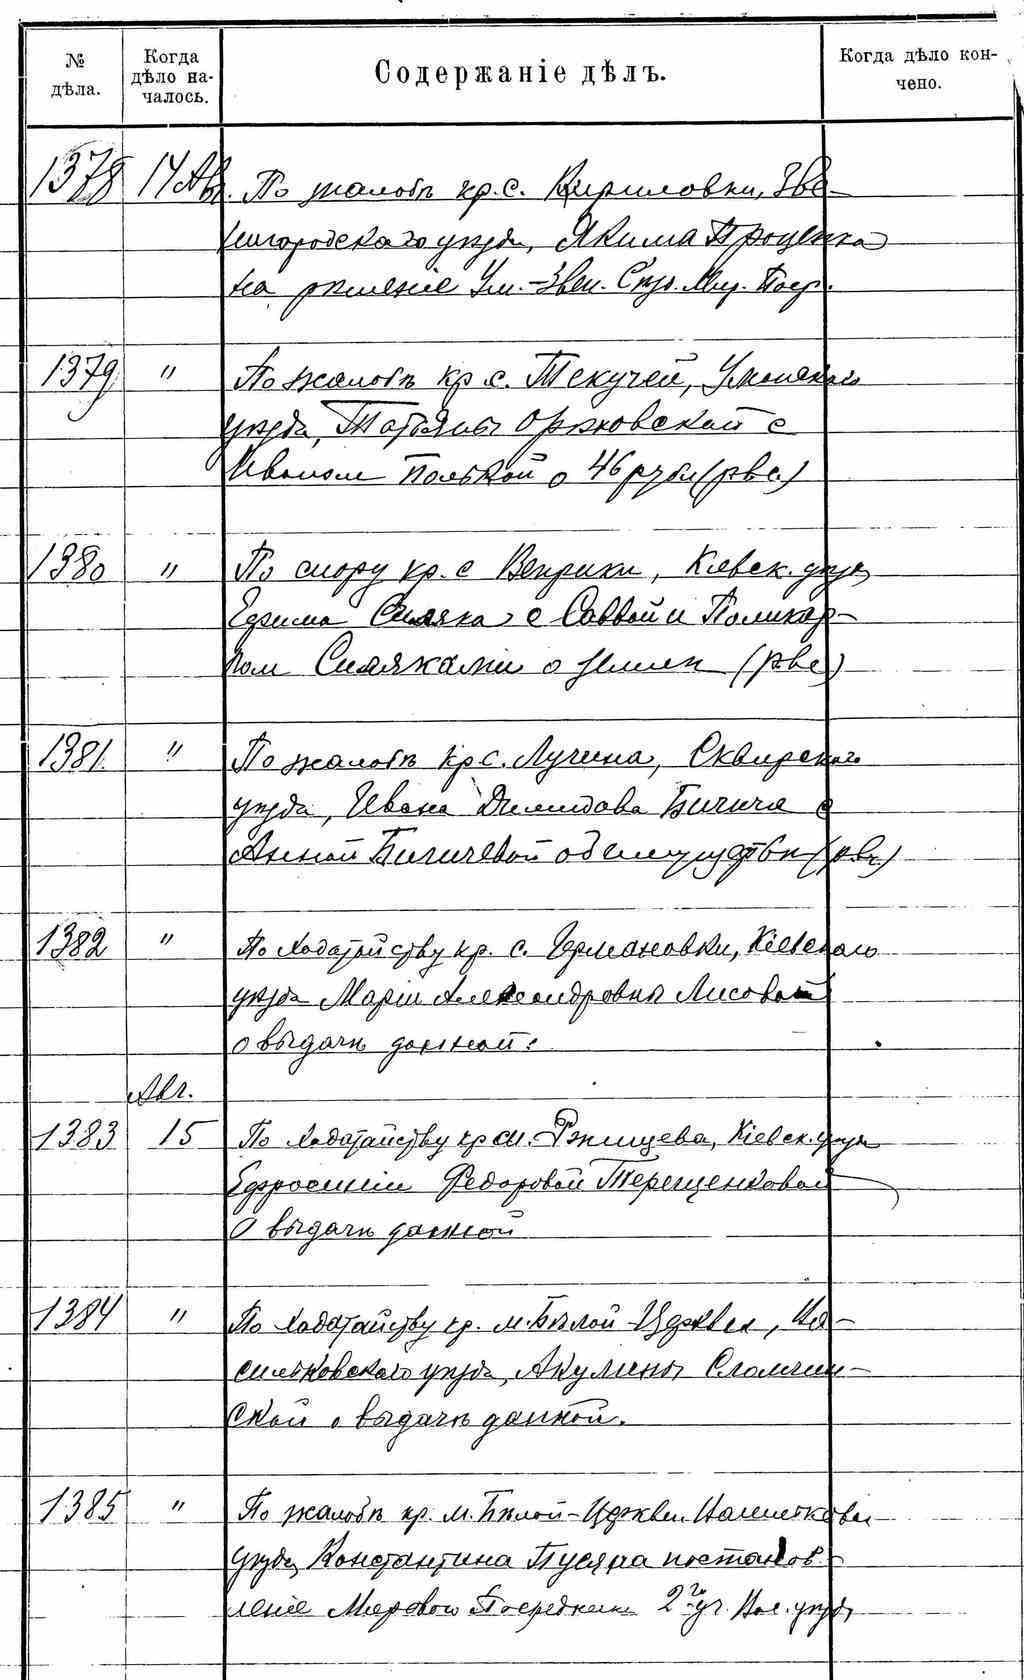 № дѣла. Когда дѣло началось. Содержаніе дѣлъ. Когда дѣло кончено.
1378 14 Авг. По жалобѣ кр. с. Кириловки, Зве-
нигородскаго уѣзда, Якима Проценка
на рѣшеніе Ум.-Звен. Съѣз. Мир. Поср.
1379 " По жалобѣ кр. с. Текучей, Уманскаго
уѣзда, Татьяны Орѣховской с
Иваном Полькой о 46 рубл (рвс.)
1380 " По спору кр. с Веприки, Кіевск. уѣзд,
Ефима с Саввой и Поликар-
пом о землѣ (рвс)
1381. " По жалобѣ кр с. Лучина, Сквирскаго
уѣзда, Ивана Демидова Бичича с
Анной Бичичевой об имуществѣ (рвс.)
1382 " По ходатайству кр. с. Германовки, Кіевскаго
уѣзда Маріи Александровны Лисовой
о выдачѣ данной.
Авг.
1383 15 По ходатайству кр м. Ржищева, Кіевск. уѣзда
Ефросиніи Федоровой Терещенковой
о выдачѣ данной
1384 " По ходатайству кр. м. Бѣлой-Церкви, Ва-
сильковскаго уѣзда, Акулины Сломчин-
ской о выдачѣ данной.
1385 " По жалобѣ кр. м. Бѣлой-Церкви Васильков
уѣзда, Константина на постанов-
леніе Мирового Посредника 2го уч. Вас. уѣзд,